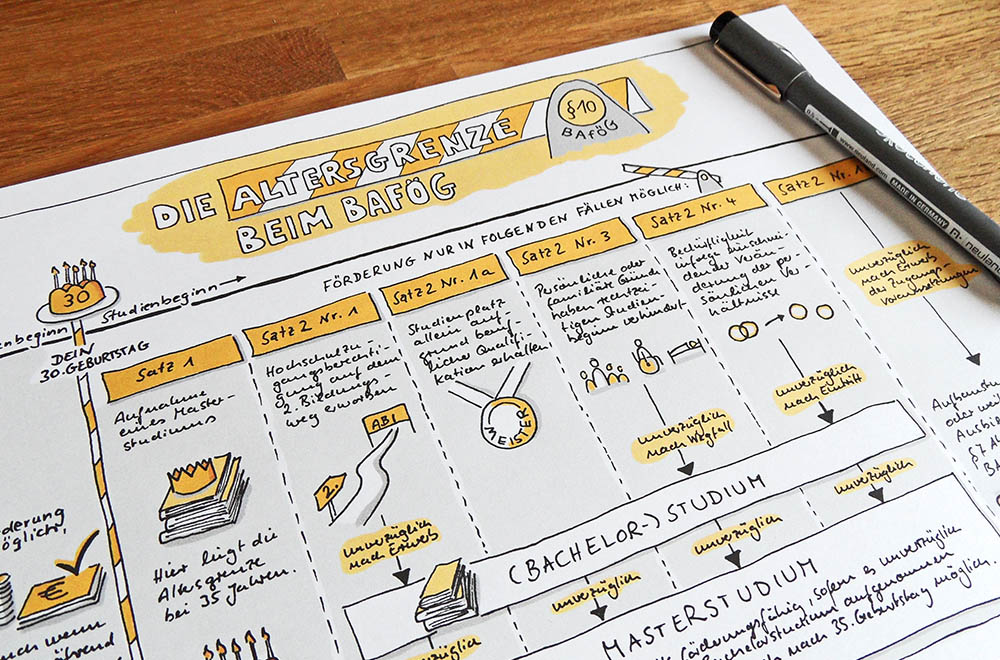 DIE ALTERSGRENZE
BEIM BAFÖG
§10
BAFÖG
FÖRDERUNG NUR IN FOLGENDEN FÄLLEN MÖGLICH:
enbeginn
Studienbeginn
30
DEIN
30. GEBURTSTAG
Satz 1
Aufnahme
eines Master-
studiums
Hier liegt die
Altersgrenze
bei 35 Jahren.
Satz 2 Nr. 1
Hochschulzu-
gangsberechti-
gung auf dem
2. Bildungs-
weg erworben
ABI
2.
unverzüglich
nach Erwerb
Satz 2 Nr. 1a
Studienplatz
allein auf-
grund beruf-
licher Qualifi-
kation erhalten
MEISTER
Satz 2 Nr. 3
Persönliche oder
familiäre Gründe
haben rechtzei-
tigen Studien-
beginn verhindert
unverzüglich
nach Wegfall
Satz 2 Nr. 4
Bedürftigkeit
infolge einschnei-
dender Verän-
derung der per-
sönlichen Ver-
hältnisse
unverzüglich
nach Eintritt
Satz 2 Nr. 1
unverzüglich
nach Erwerb
der Zugangs-
voraussetzungen
Ausbi
§7 A
BA
derung
öglich,
€
uch wenn
während
(BACHELOR-) STUDIUM
unverzüglich
unverzüglich
unverzüglich
unverzüglich
MASTERSTUDIUM
förderungsfähig, sofern es unverzüglich
Bachelorstudium aufgenommen
nach 35. Geburtstag möglich.
MADE IN GERMANY
neuland